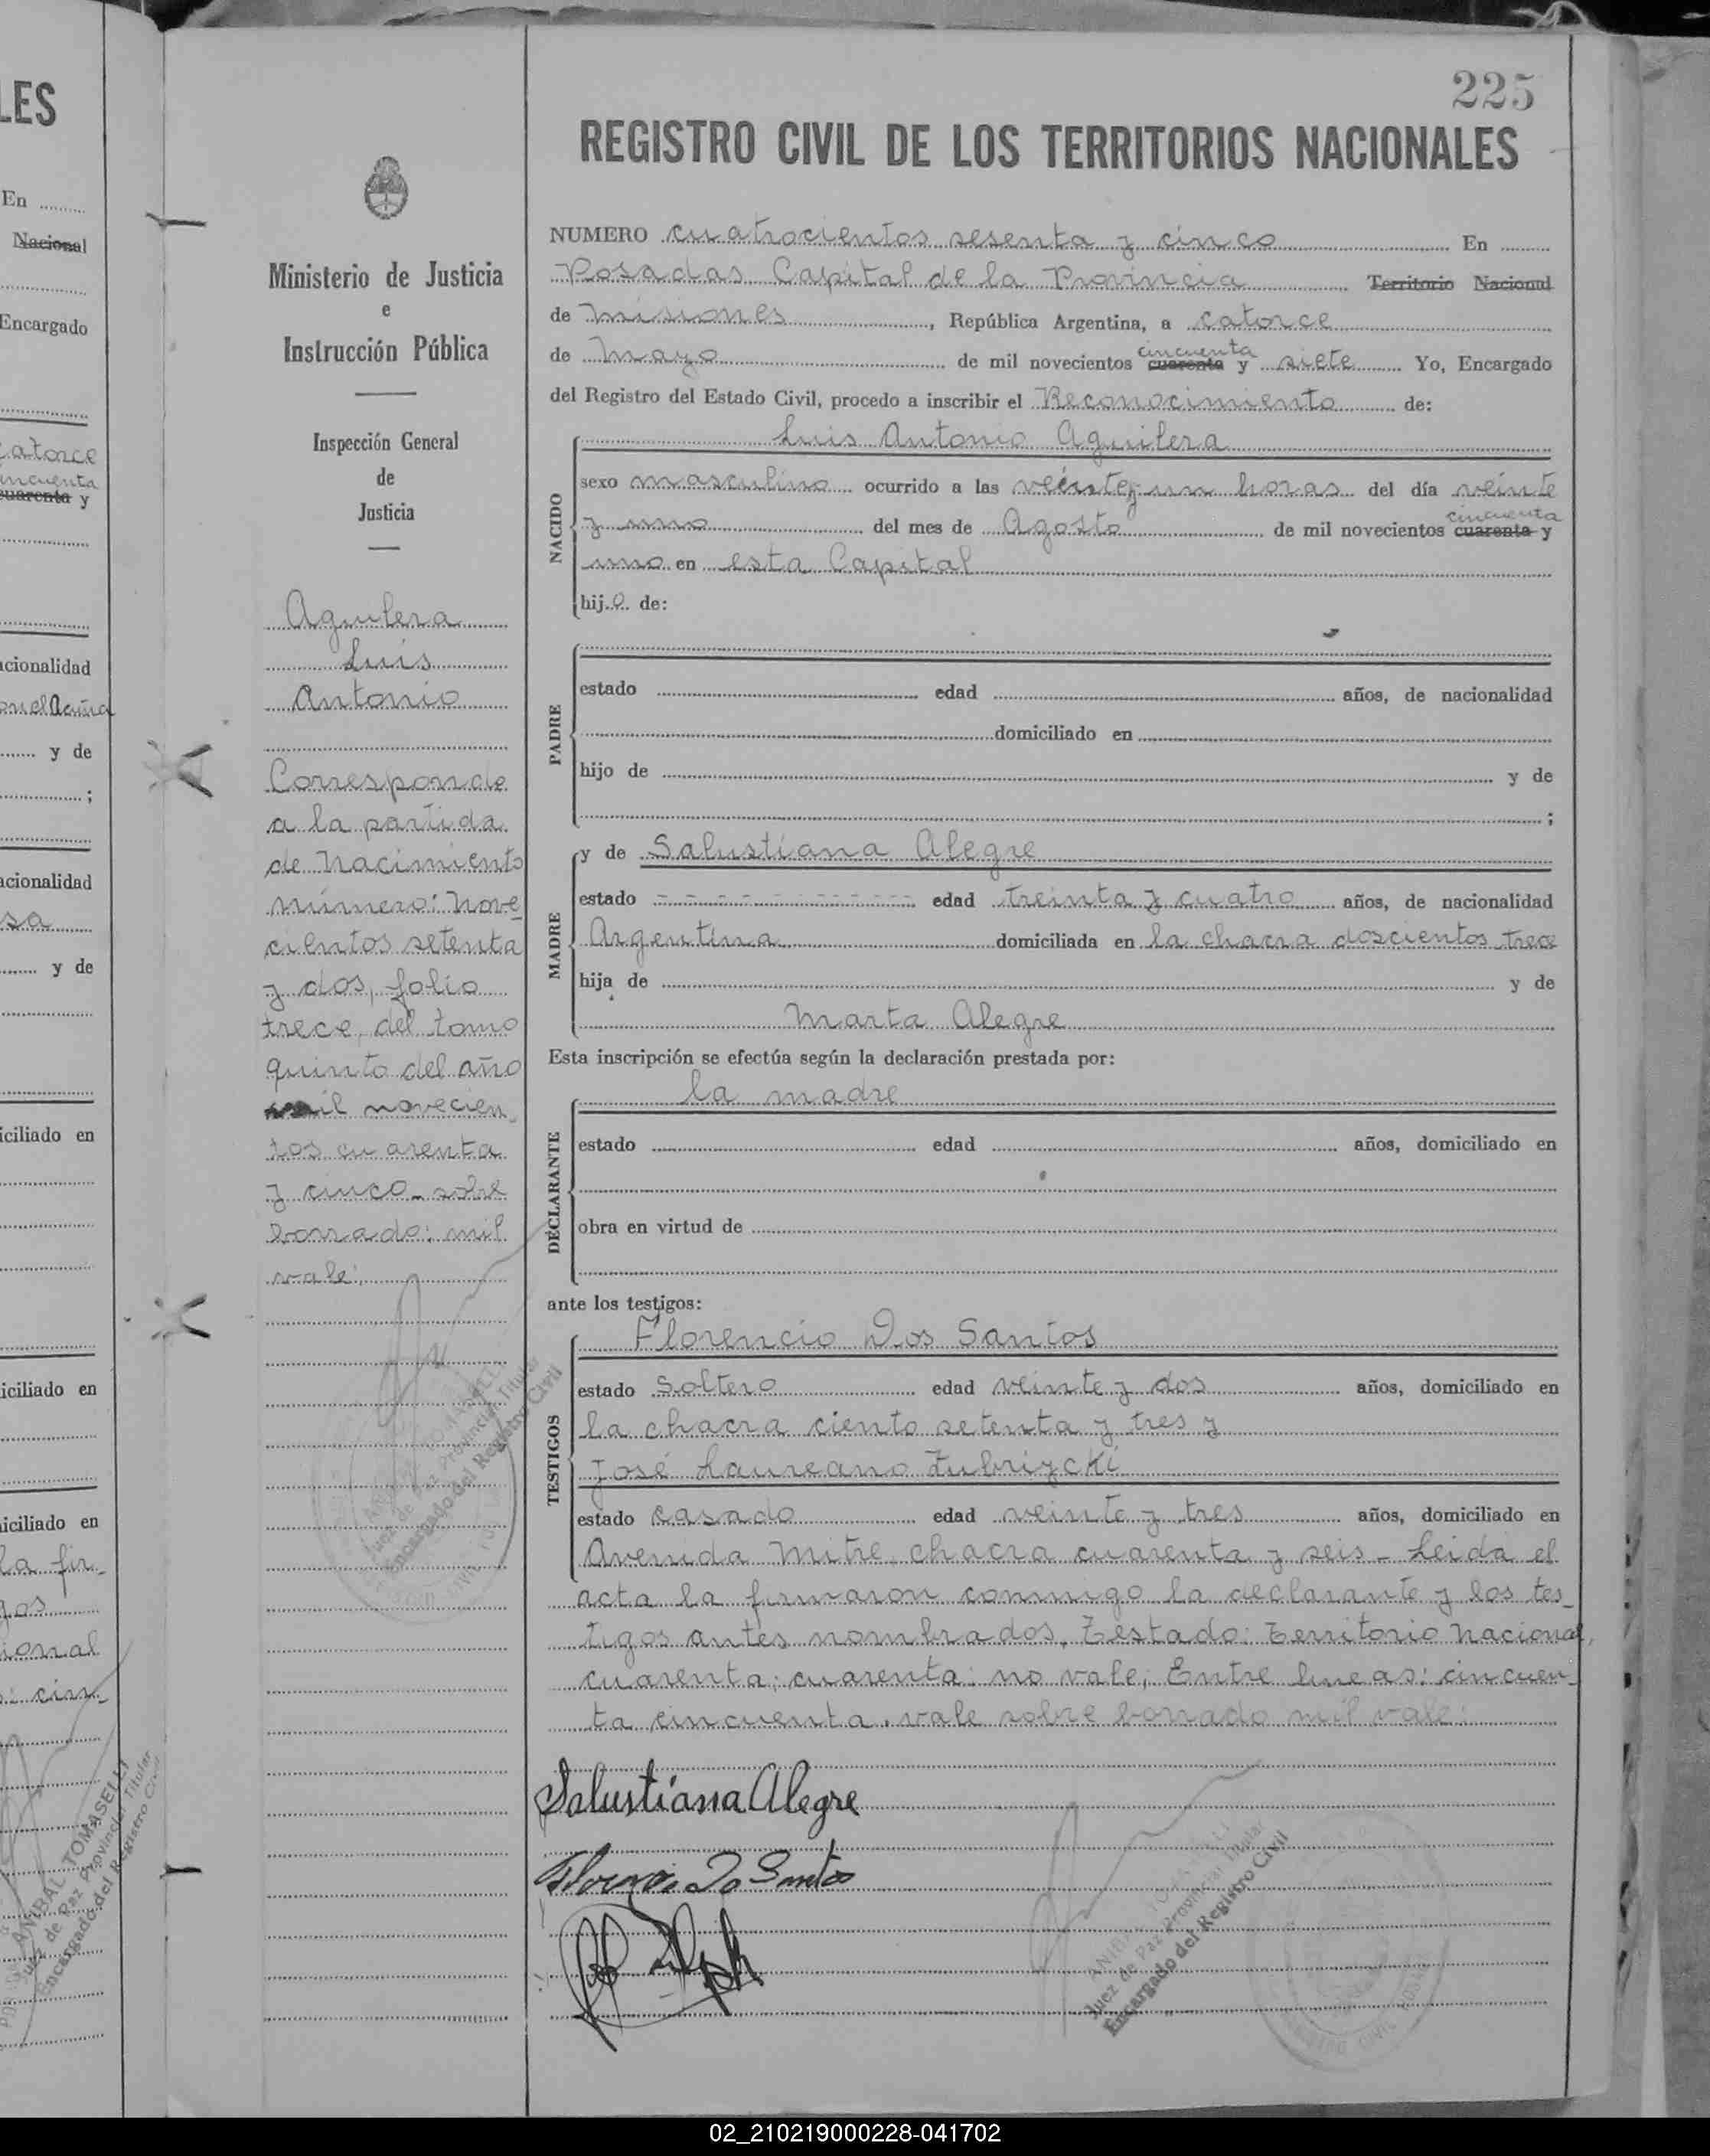 LES
En
Nacional
Encargado
catorce
cincuenta
cuarenta y
cionalidad
y de
;
acionalidad
y de
iciliado en
iciliado en
iciliado en
la fir-
gos
ional
: cin-
ANIBAL TOMASELLI
Juez de Paz Provincial Titular
Encargado del Registro Civil
Ministerio de Justicia
e
Instrucción Pública
Inspección General
de
Justicia
Aguilera
Luis
Antonio
Corresponde
a la partida
de Nacimiento
número: nove
cientos setenta
y dos, folio
trece, del tomo
quinto del año
mil novecien-
tos cuarenta
y cinco - sobre
borrado: mil
vale:
Juez de Paz Provincial Titular
Encargado del Registro Civil
225
REGISTRO CIVIL DE LOS TERRITORIOS NACIONALES
NUMERO cuatrocientos sesenta y cinco En
Posadas Capital de la Provincia Territorio Nacional
de Misiones, República Argentina, a catorce
de Mayo de mil novecientos cuarenta cincuenta y siete Yo, Encargado
del Registro del Estado Civil, procedo a inscribir el Reconocimiento de:
Luis Antonio Aguilera
NACIDO
sexo masculino ocurrido a las veinte y un horas del día veinte
y uno del mes de Agosto de mil novecientos cuarenta cincuenta y
uno en esta Capital
hijo de:
PADRE
estado edad años, de nacionalidad
domiciliado en
hijo de y de
;
MADRE
y de Salustiana Alegre
estado - - - - - - - - edad treinta y cuatro años, de nacionalidad
Argentina domiciliada en la chacra doscientos trece
hija de y de
Marta Alegre
Esta inscripción se efectúa según la declaración prestada por:
la madre
DECLARANTE
estado edad años, domiciliado en
obra en virtud de
ante los testigos:
Florencio Dos Santos
TESTIGOS
estado Soltero edad veinte y dos años, domiciliado en
la chacra ciento setenta y tres y
José Laureano Zubrizcki
estado casado edad veinte y tres años, domiciliado en
Avenida Mitre, chacra cuarenta y seis - Leída el
acta la firmaron conmigo la declarante y los tes-
tigos antes nombrados. Testado: Territorio Nacional,
cuarenta; cuarenta: no vale; Entre lineas: cincuen-
ta cincuenta. vale sobre borrado mil vale:
Salustiana Alegre
Juez de Paz Provincial Titular
Encargado del Registro Civil
02_210219000228-041702